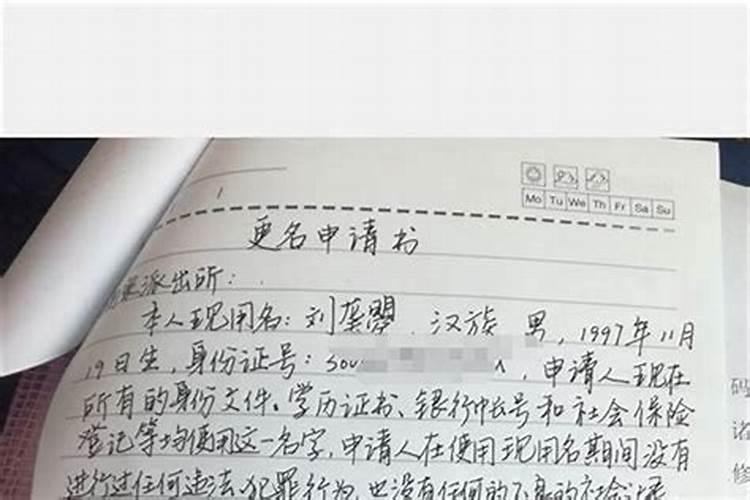 Mo Tu We Th Fr Sa Su
更名申请书
派出所：
本人现用名：刘龑曌 汉族 男，1997年11月
19日生，身份证号：500 ，申请人现在
所有的身份文件、学历证书、银行帐号和社会保险
登记等均使用这一名字，申请人在使用现用名期间没有
进行过任何违法、犯罪行为，也没有任何的不良的社会
码
诸
修